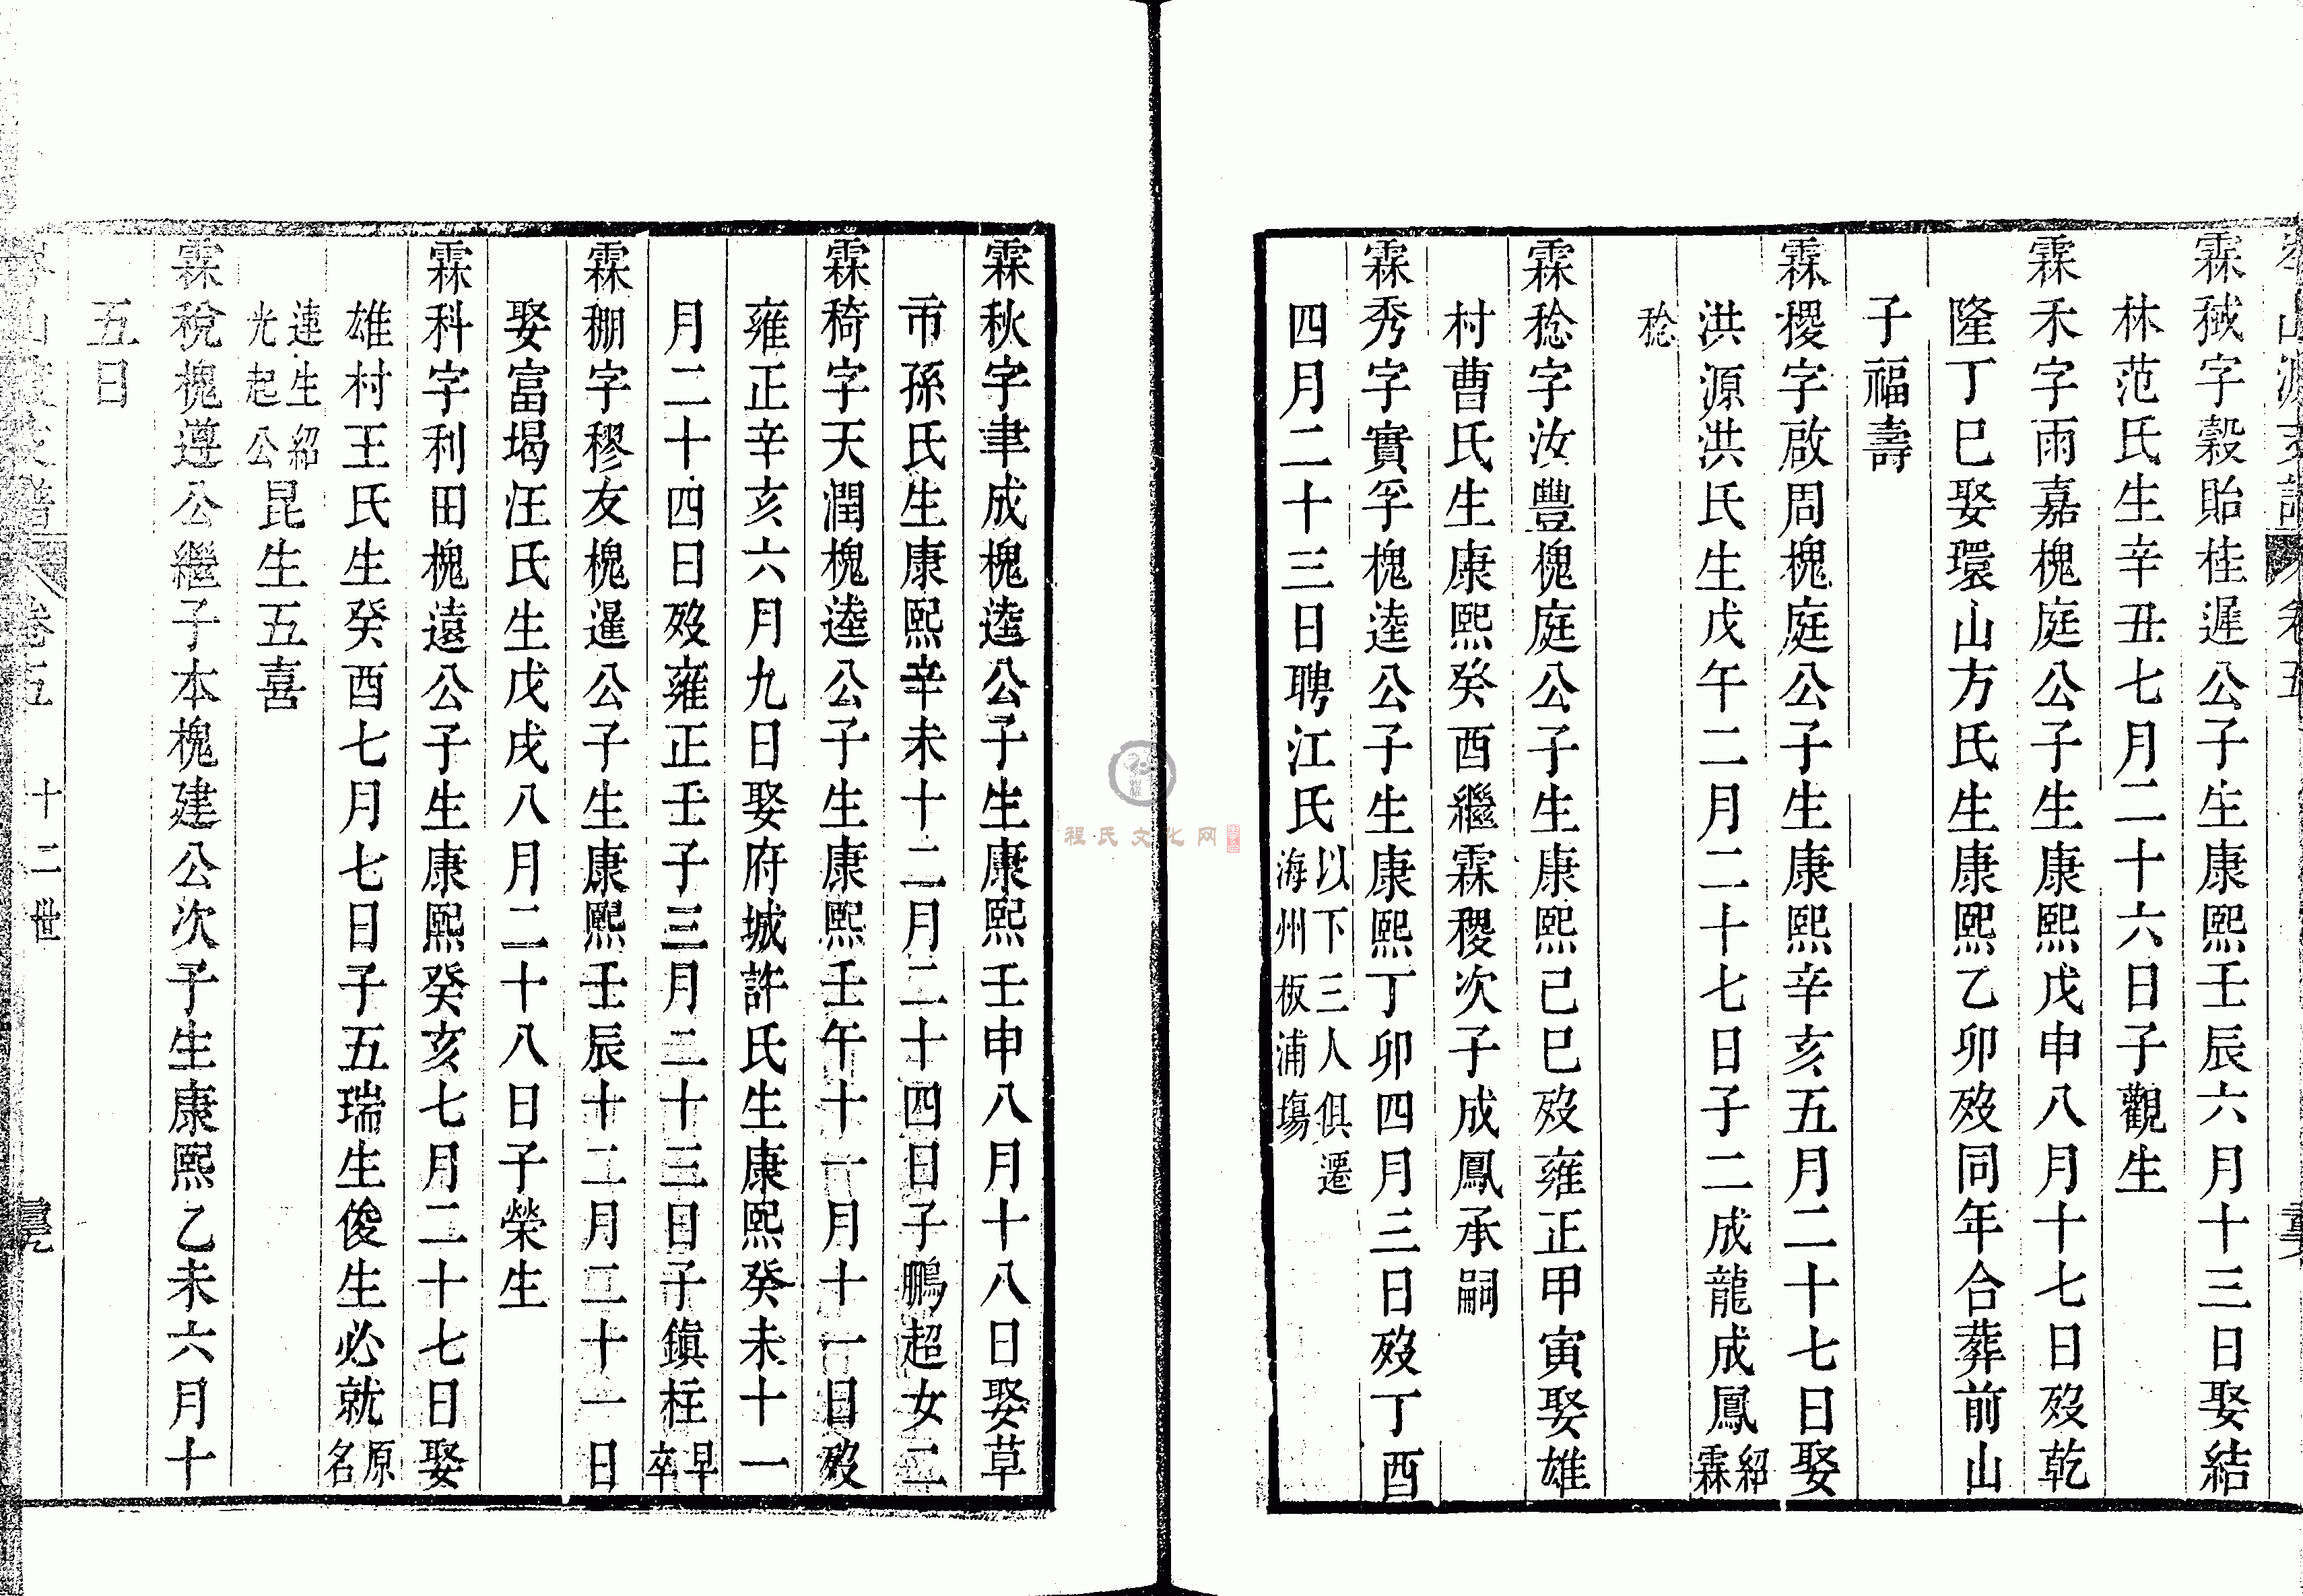 霖棫字穀貽桂遲公子生康熙壬辰六月十三日娶結
林范氏生辛丑七月二十六日子觀生
霖禾字雨嘉槐庭公子生康熙戊申八月十七日歿乾
隆丁巳娶環山方氏生康熙乙卯歿同年合葬前山
子福壽
霖稷字啟周槐庭公子生康熙辛亥五月二十七日娶
洪源洪氏生戊午二月二十七日子二成龍成鳳紹霖
稔
霖稔字汝豐槐庭公子生康熙己巳歿雍正甲寅娶雄
村曹氏生康熙癸酉繼霖稷次子成鳳承嗣
霖秀字實孚槐逵公子生康熙丁卯四月三日歿丁酉
四月二十三日聘江氏以下三人俱遷海州板浦塲
霖秋字聿成槐逵公子生康熙壬申八月十八日娶草
市孫氏生康熙辛未十二月二十四日子鵬超女二
霖稿字天潤槐逵公子生康熙壬午十一月十一日歿
雍正辛亥六月九日娶府城許氏生康熙癸未十一
月二十四日歿雍正壬子三月二十三日子鎮柱早卒
霖稝字穆友槐暹公子生康熙壬辰十二月二十一日
娶富堨汪氏生戊戌八月二十八日子榮生
霖科字利田槐遠公子生康熙癸亥七月二十七日娶
雄村王氏生癸酉七月七日子五瑞生俊生必就原名
連生紹光起公昆生五喜
霖稅槐遵公繼子本槐建公次子生康熙乙未六月十
五日
卷五 十二世
程氏文化网